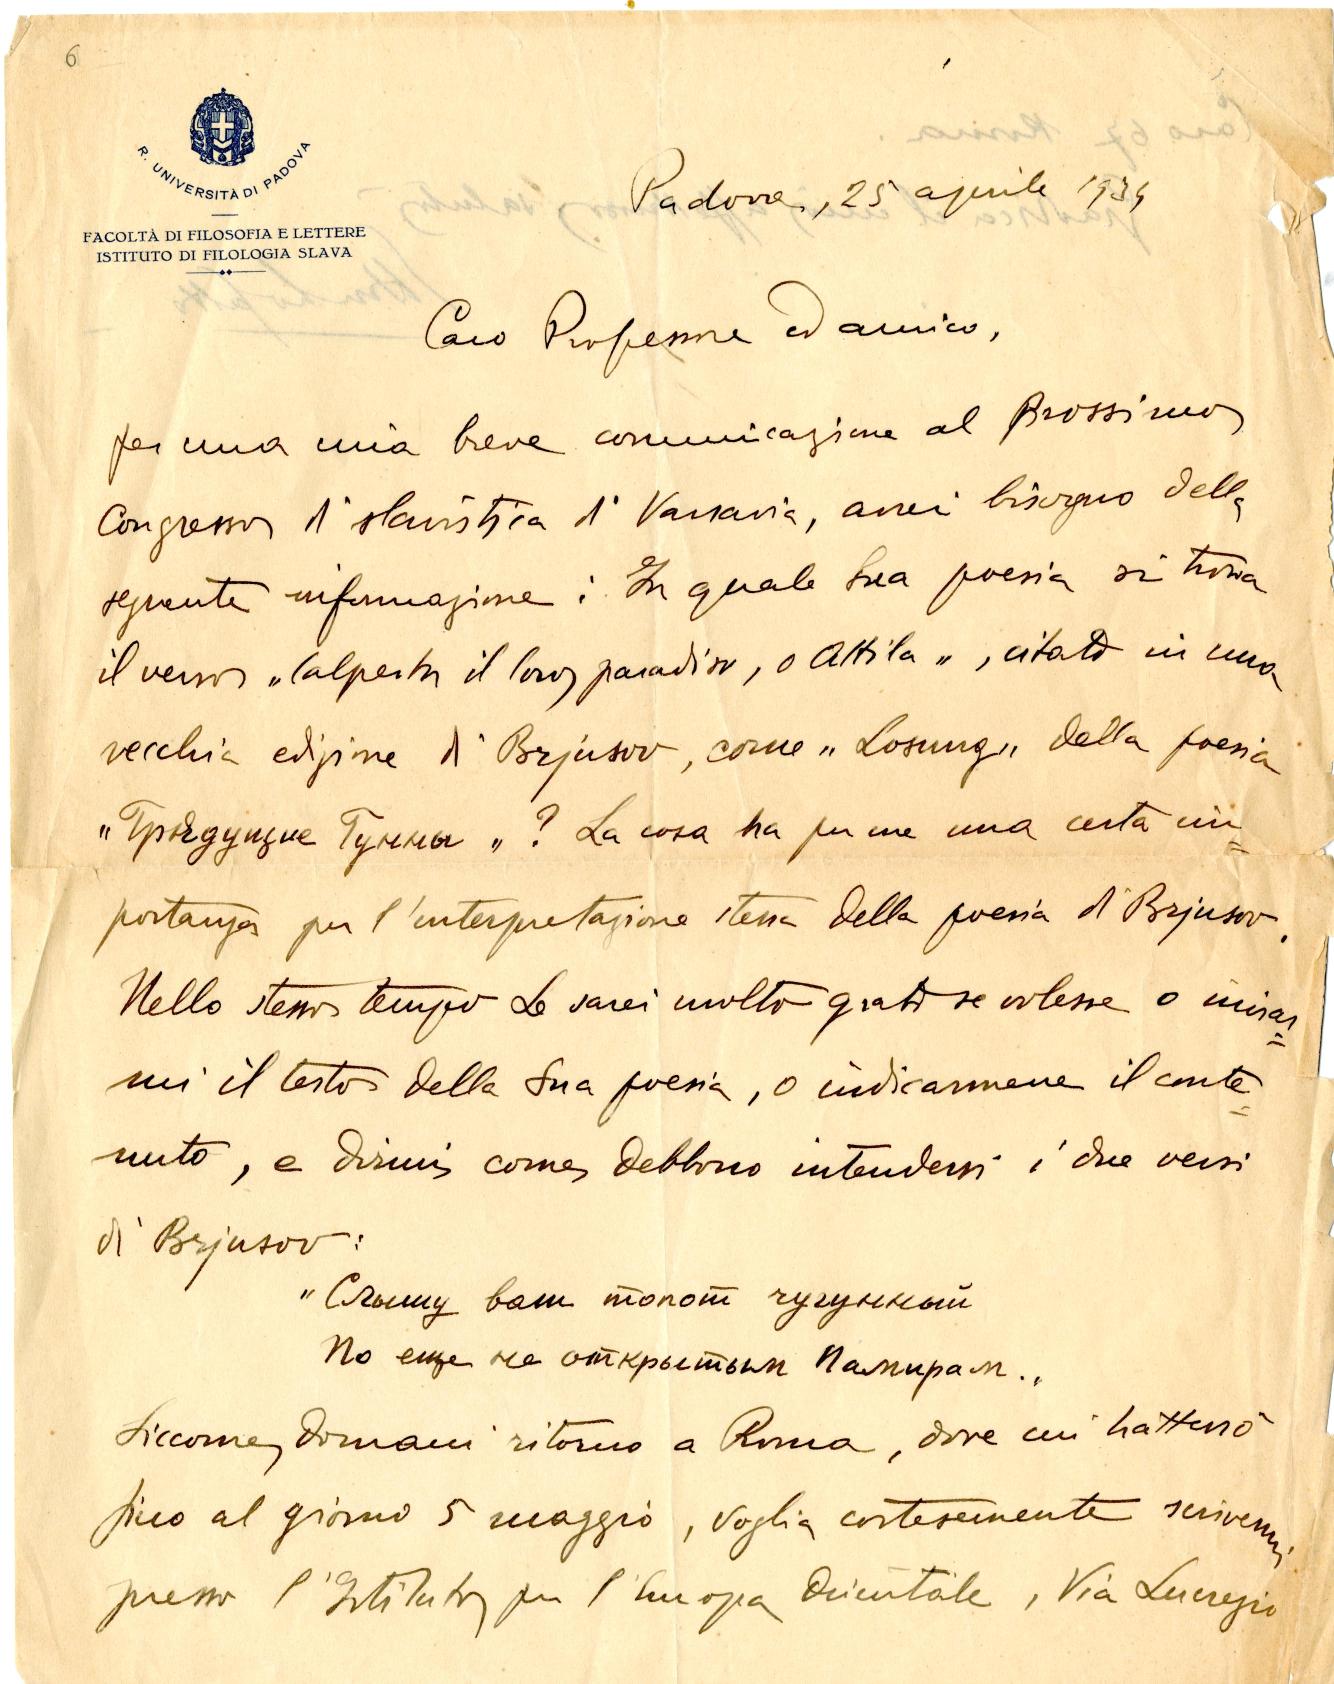 6
R. UNIVERSITÀ DI PADOVA
FACOLTÀ DI FILOSOFIA E LETTERE
ISTITUTO DI FILOLOGIA SLAVA
Padova, 25 aprile 1934
Caro Professore ed amico,
per una mia breve comunicazione al Prossimo
Congresso di slavistica di Varsavia, avrei bisogno della
seguente informazione: In quale Sua poesia si trova
il verso „Calpesta il loro paradiso, o Attila„, citato in una
vecchia edizione di Brjusov, come „Losung„ della poesia
„Грядущие Гунны„? La cosa ha per me una certa im=
portanza per l'interpretazione stessa della poesia di Brjusov.
Nello stesso tempo Le sarei molto grato se volesse o inviar=
mi il testo della Sua poesia, o indicarmene il conte=
nuto, e dirmi come debbono intendersi i due versi
di Brjusov:
"Слышу ваш топот чугунный
По еще не открытым Памирам.„
Siccome domani ritorno a Roma, dove mi tratterrò
fino al giorno 5 maggio, voglia cortesemente scrivermi
presso l'Istituto per l'Europa Orientale, Via Lucrezio